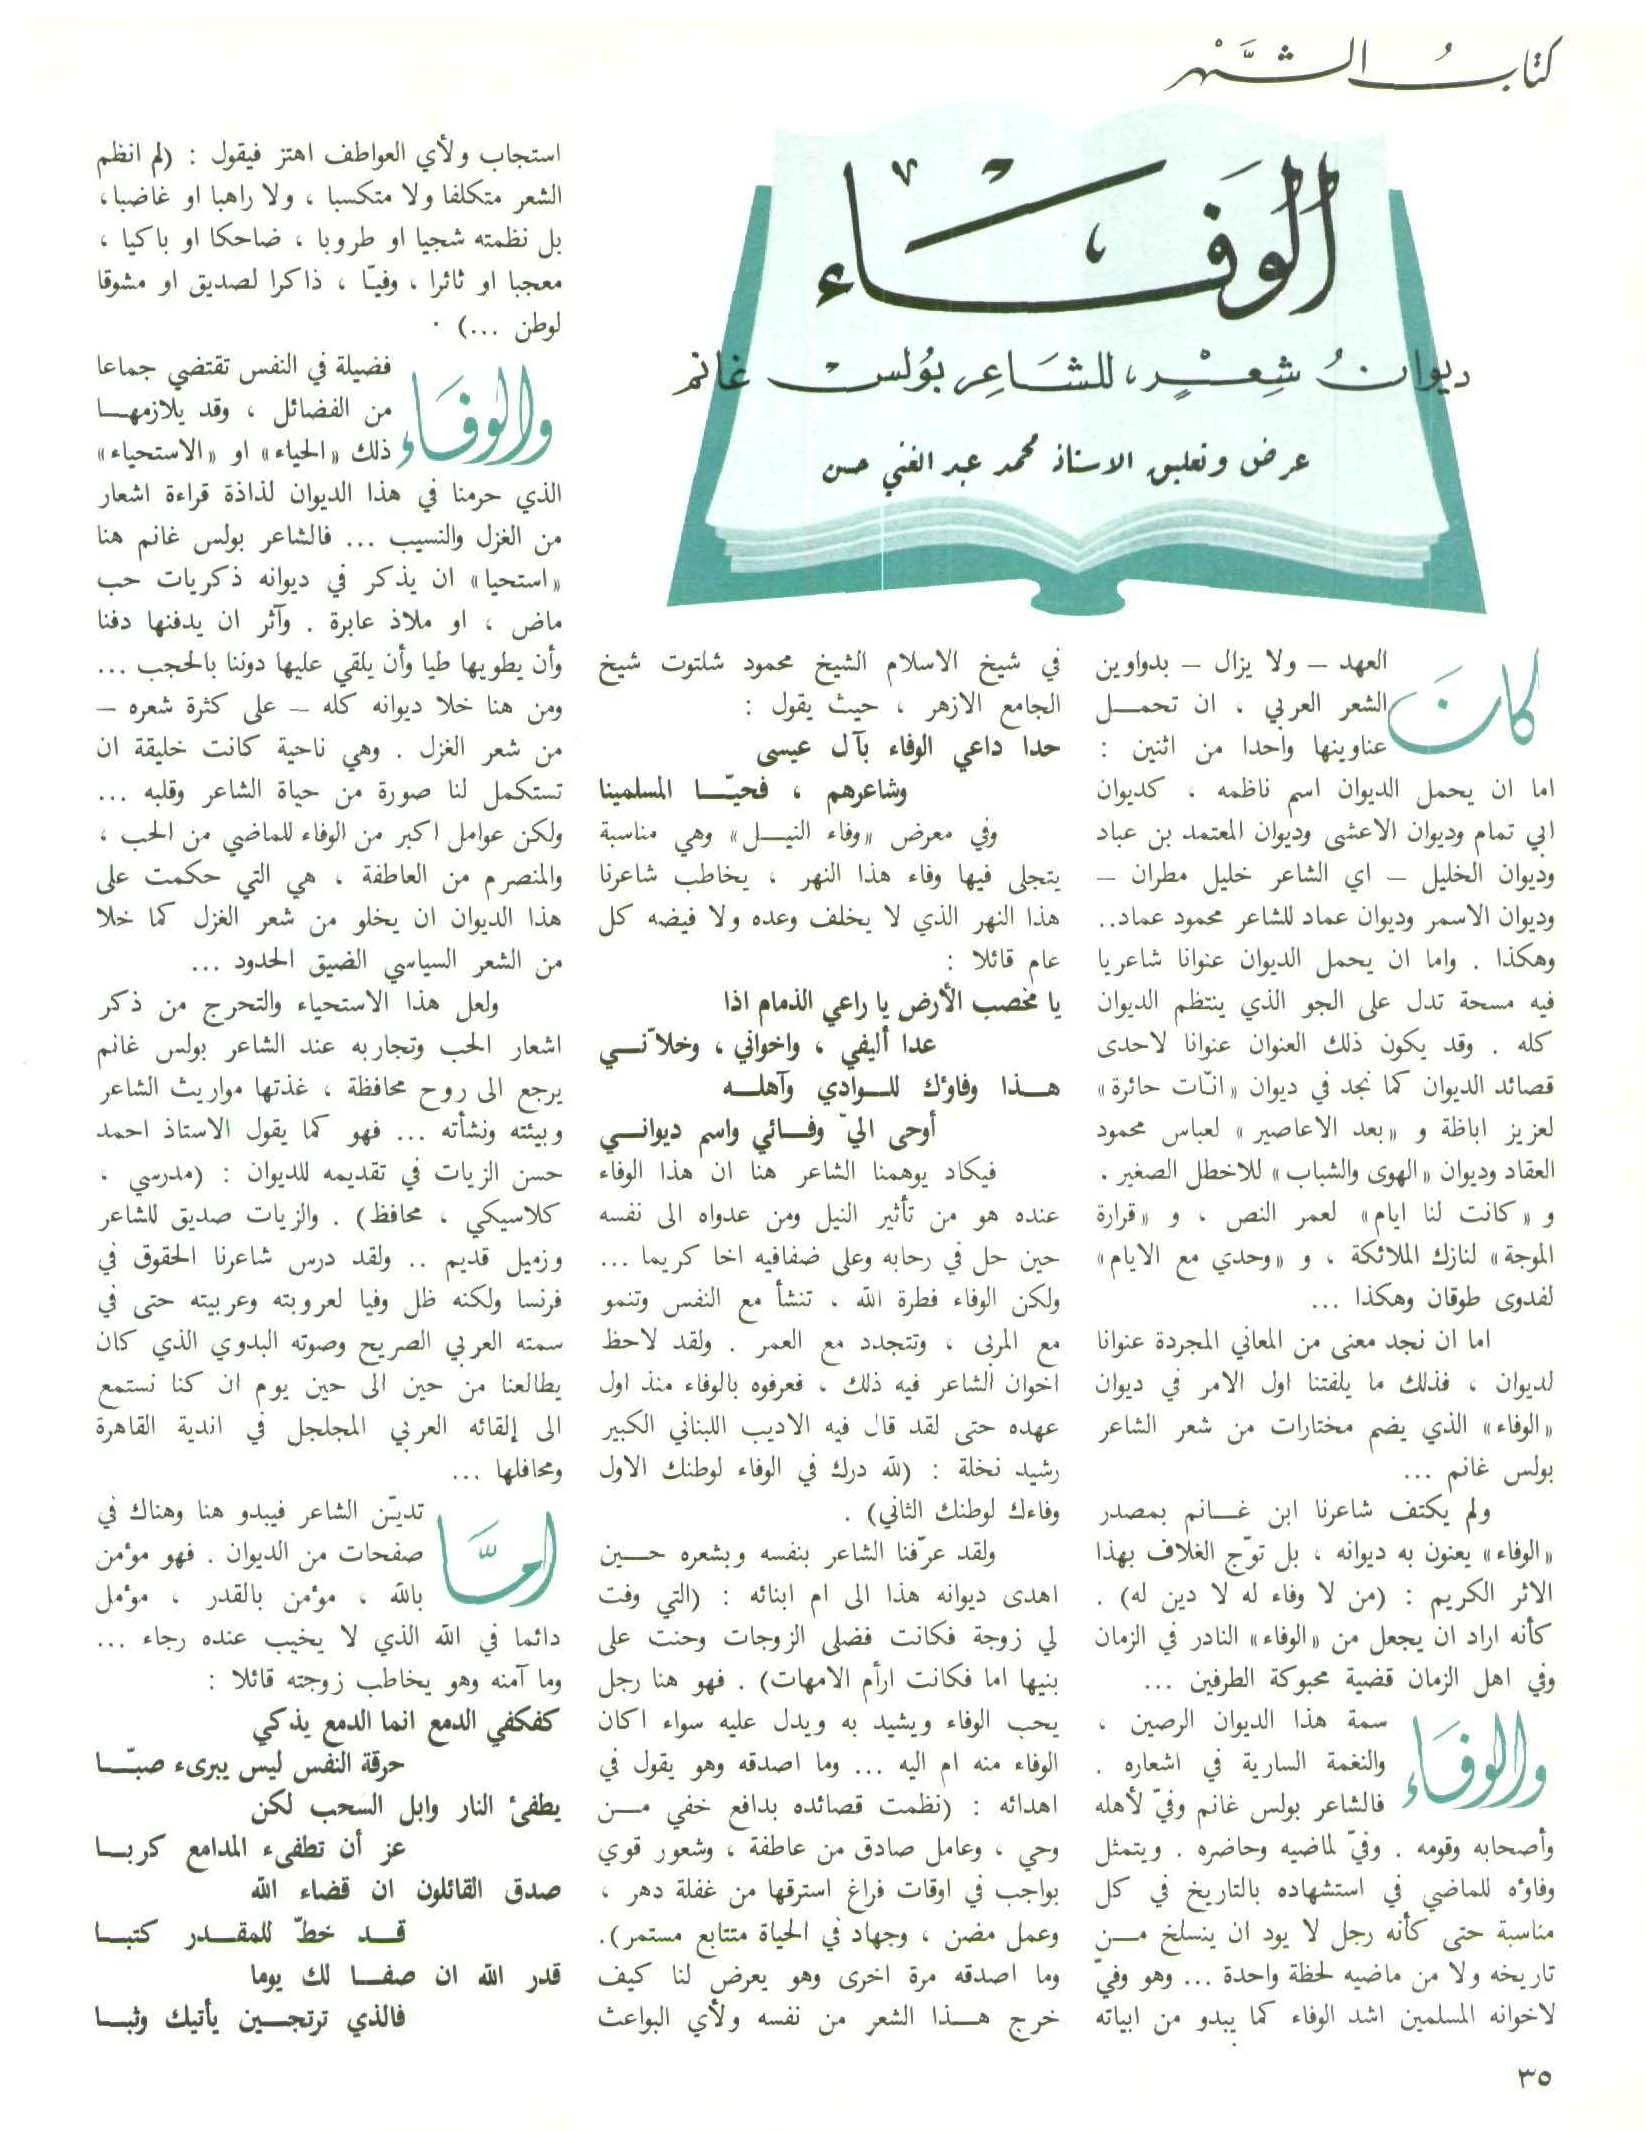 كتاب الشهر
الوفاء
ديوان شعر، للشاعر بولس غانم
عرض وتعليق الاستاذ محمد عبد الغني حسن
كان العهد – ولا يزال – بدواوين
الشعر العربي ، ان تحمل
عناوينها واحدا من اثنين :
اما ان يحمل الديوان اسم ناظمه ، كديوان
ابي تمام وديوان الاعشى وديوان المعتمد بن عباد
وديوان الخليل – اي الشاعر خليل مطران –
وديوان الاسمر وديوان عماد للشاعر محمود عماد..
وهكذا . واما ان يحمل الديوان عنوانا شاعريا
فيه مسحة تدل على الجو الذي ينتظم الديوان
كله . وقد يكون ذلك العنوان عنوانا لاحدى
قصائد الديوان كما نجد في ديوان «انّات حائرة»
لعزيز اباظة و «بعد الاعاصير» لعباس محمود
العقاد وديوان «الهوى والشباب» للاخطل الصغير .
و «كانت لنا ايام» لعمر النص ، و «قرارة
الموجة» لنازك الملائكة ، و «وحدي مع الايام»
لفدوى طوقان وهكذا ...
اما ان نجد معنى من المعاني المجردة عنوانا
لديوان ، فذلك ما يلفتنا اول الامر في ديوان
«الوفاء» الذي يضم مختارات من شعر الشاعر
بولس غانم ...
ولم يكتف شاعرنا ابن غانم بمصدر
«الوفاء» يعنون به ديوانه ، بل توّج الغلاف بهذا
الاثر الكريم : (من لا وفاء له لا دين له) .
كأنه اراد ان يجعل من «الوفاء» النادر في الزمان
وفي اهل الزمان قضية محبوكة الطرفين ...
والوفاء سمة هذا الديوان الرصين ،
والنغمة السارية في اشعاره .
فالشاعر بولس غانم وفيّ لأهله
وأصحابه وقومه . وفيّ لماضيه وحاضره . ويتمثل
وفاؤه للماضي في استشهاده بالتاريخ في كل
مناسبة حتى كأنه رجل لا يود ان ينسلخ من
تاريخه ولا من ماضيه لحظة واحدة ... وهو وفيّ
لاخوانه المسلمين اشد الوفاء كما يبدو من ابياته
في شيخ الاسلام الشيخ محمود شلتوت شيخ
الجامع الازهر ، حيث يقول :
حدا داعي الوفاء بآل عيسى
وشاعرهم ، فحيّا المسلمينا
وفي معرض «وفاء النيل» وهي مناسبة
يتجلى فيها وفاء هذا النهر ، يخاطب شاعرنا
هذا النهر الذي لا يخلف وعده ولا فيضه كل
عام قائلا :
يا مخصب الأرض يا راعي الذمام اذا
عدا أليفي ، واخواني ، وخلاّني
هذا وفاؤك للوادي وآهله
أوحى اليّ وفائي واسم ديواني
فيكاد يوهمنا الشاعر هنا ان هذا الوفاء
عنده هو من تأثير النيل ومن عدواه الى نفسه
حين حل في رحابه وعلى ضفافيه اخا كريما ...
ولكن الوفاء فطرة الله ، تنشأ مع النفس وتنمو
مع المربى ، وتتجدد مع العمر . ولقد لاحظ
اخوان الشاعر فيه ذلك ، فعرفوه بالوفاء منذ اول
عهده حتى لقد قال فيه الاديب اللبناني الكبير
رشيد نخلة : (لله درك في الوفاء لوطنك الاول
وفاءك لوطنك الثاني) .
ولقد عرّفنا الشاعر بنفسه وبشعره حين
اهدى ديوانه هذا الى ام ابنائه : (التي وفت
لي زوجة فكانت فضلى الزوجات وحنت على
بنيها اما فكانت ارأم الامهات) . فهو هنا رجل
يحب الوفاء ويشيد به ويدل عليه سواء اكان
الوفاء منه ام اليه ... وما اصدقه وهو يقول في
اهدائه : (نظمت قصائده بدافع خفي من
وحي ، وعامل صادق من عاطفة ، وشعور قوي
بواجب في اوقات فراغ استرقها من غفلة دهر ،
وعمل مضن ، وجهاد في الحياة متتابع مستمر).
وما اصدقه مرة اخرى وهو يعرض لنا كيف
خرج هذا الشعر من نفسه ولأي البواعث
استجاب ولأي العواطف اهتز فيقول : (لم انظم
الشعر متكلفا ولا متكسبا ، ولا راهبا او غاضبا،
بل نظمته شجيا او طروبا ، ضاحكا او باكيا ،
معجبا او ثائرا ، وفيّا ، ذاكرا لصديق او مشوقا
لوطن ...) .
والوفاء فضيلة في النفس تقتضي جماعا
من الفضائل ، وقد يلازمها
ذلك «الحياء» او «الاستحياء»
الذي حرمنا في هذا الديوان لذاذة قراءة اشعار
من الغزل والنسيب ... فالشاعر بولس غانم هنا
«استحيا» ان يذكر في ديوانه ذكريات حب
ماض ، او ملاذ عابرة . وآثر ان يدفنها دفنا
وأن يطويها طيا وأن يلقي عليها دوننا بالحجب ...
ومن هنا خلا ديوانه كله – على كثرة شعره –
من شعر الغزل . وهي ناحية كانت خليقة ان
تستكمل لنا صورة من حياة الشاعر وقلبه ...
ولكن عوامل اكبر من الوفاء للماضي من الحب ،
والمنصرم من العاطفة ، هي التي حكمت على
هذا الديوان ان يخلو من شعر الغزل كما خلا
من الشعر السياسي الضيق الحدود ...
ولعل هذا الاستحياء والتحرج من ذكر
اشعار الحب وتجاربه عند الشاعر بولس غانم
يرجع الى روح محافظة ، غذتها مواريث الشاعر
وبيئته ونشأته ... فهو كما يقول الاستاذ احمد
حسن الزيات في تقديمه للديوان : (مدرسي ،
كلاسيكي ، محافظ) . والزيات صديق للشاعر
وزميل قديم .. ولقد درس شاعرنا الحقوق في
فرنسا ولكنه ظل وفيا لعروبته وعربيته حتى في
سمته العربي الصريح وصوته البدوي الذي كان
يطالعنا من حين الى حين يوم ان كنا نستمع
الى إلقائه العربي المجلجل في اندية القاهرة
ومحافلها ...
امّا تديّن الشاعر فيبدو هنا وهناك في
صفحات من الديوان . فهو مؤمن
بالله ، مؤمن بالقدر ، مؤمل
دائما في الله الذي لا يخيب عنده رجاء ...
وما آمنه وهو يخاطب زوجته قائلا :
كفكفي الدمع انما الدمع يذكي
حرقة النفس ليس يبرىء صبّا
يطفئ النار وابل السحب لكن
عز أن تطفىء المدامع كربا
صدق القائلون ان قضاء الله
قد خطّ للمقدر كتبا
قدر الله ان صفا لك يوما
فالذي ترتجين يأتيك وثبا
٣٥